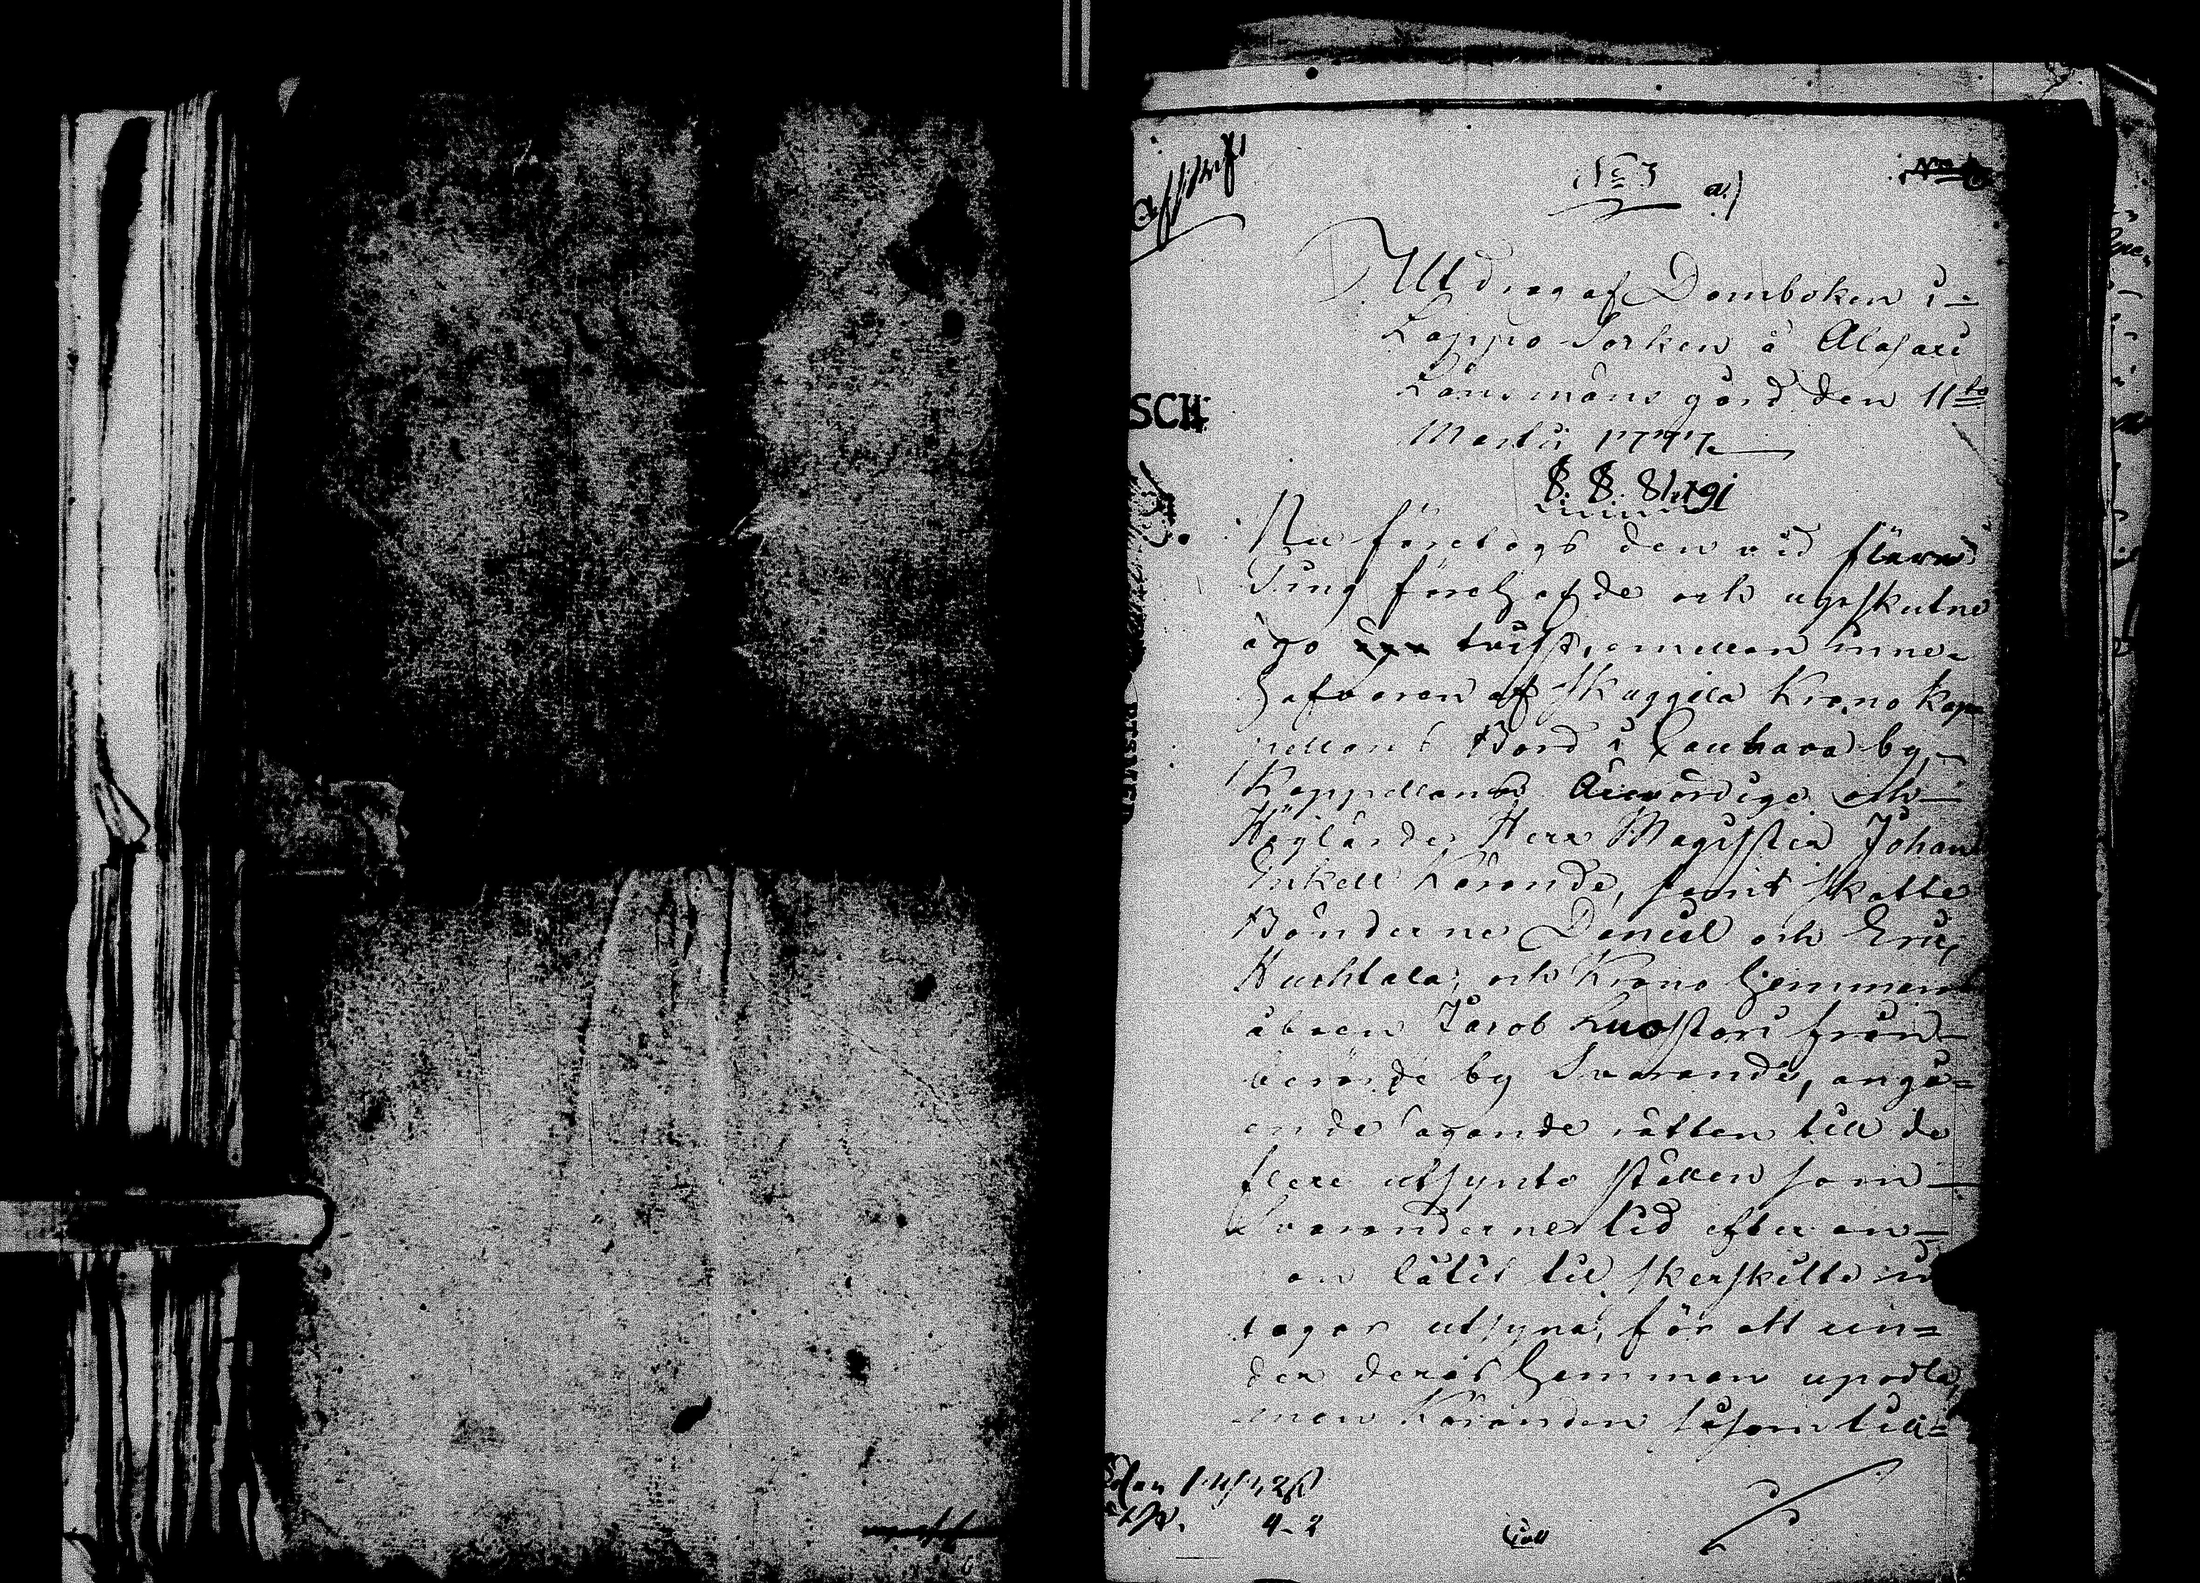 Afskrift
N:o 3 a)
Utdrag af Domboken i
Lappo Socken å Alasari
Länsmans gård den 11te
Martii 1777
S. S. 81, 191
Nu företogs den vid flera
Ting förehafde och upskutne
ägo tvist, emellan inne-
hafvaren af Skuggila Krono kap-
pellans Bord i Kauhava by,
Kappellanen Ärevördige och
Höglärde Herr Magister Johan
Enkell Kärande, samt Skatte
Bönderne Daniel och Eric
Huchtala, och Krono Hemmans
åboen Jacob Luostari från
berörde by Svarande, angå-
ende äganderätten till de
flere utsynte ställen som
Svaranderne tid efter an-
nan låtit til särskilte in
tagor utsyna, för att un-
der deras Hemman upodla,
men Käranden såsom till-
4-2
till